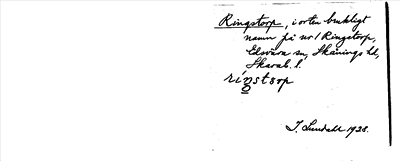 Ringstorp, i orten brukligt
namn på nr 1 Ringstorp,
Edsvära sn, Skånings hd,
Skarab. l.
ringstorp
I. Lundahl 1928.